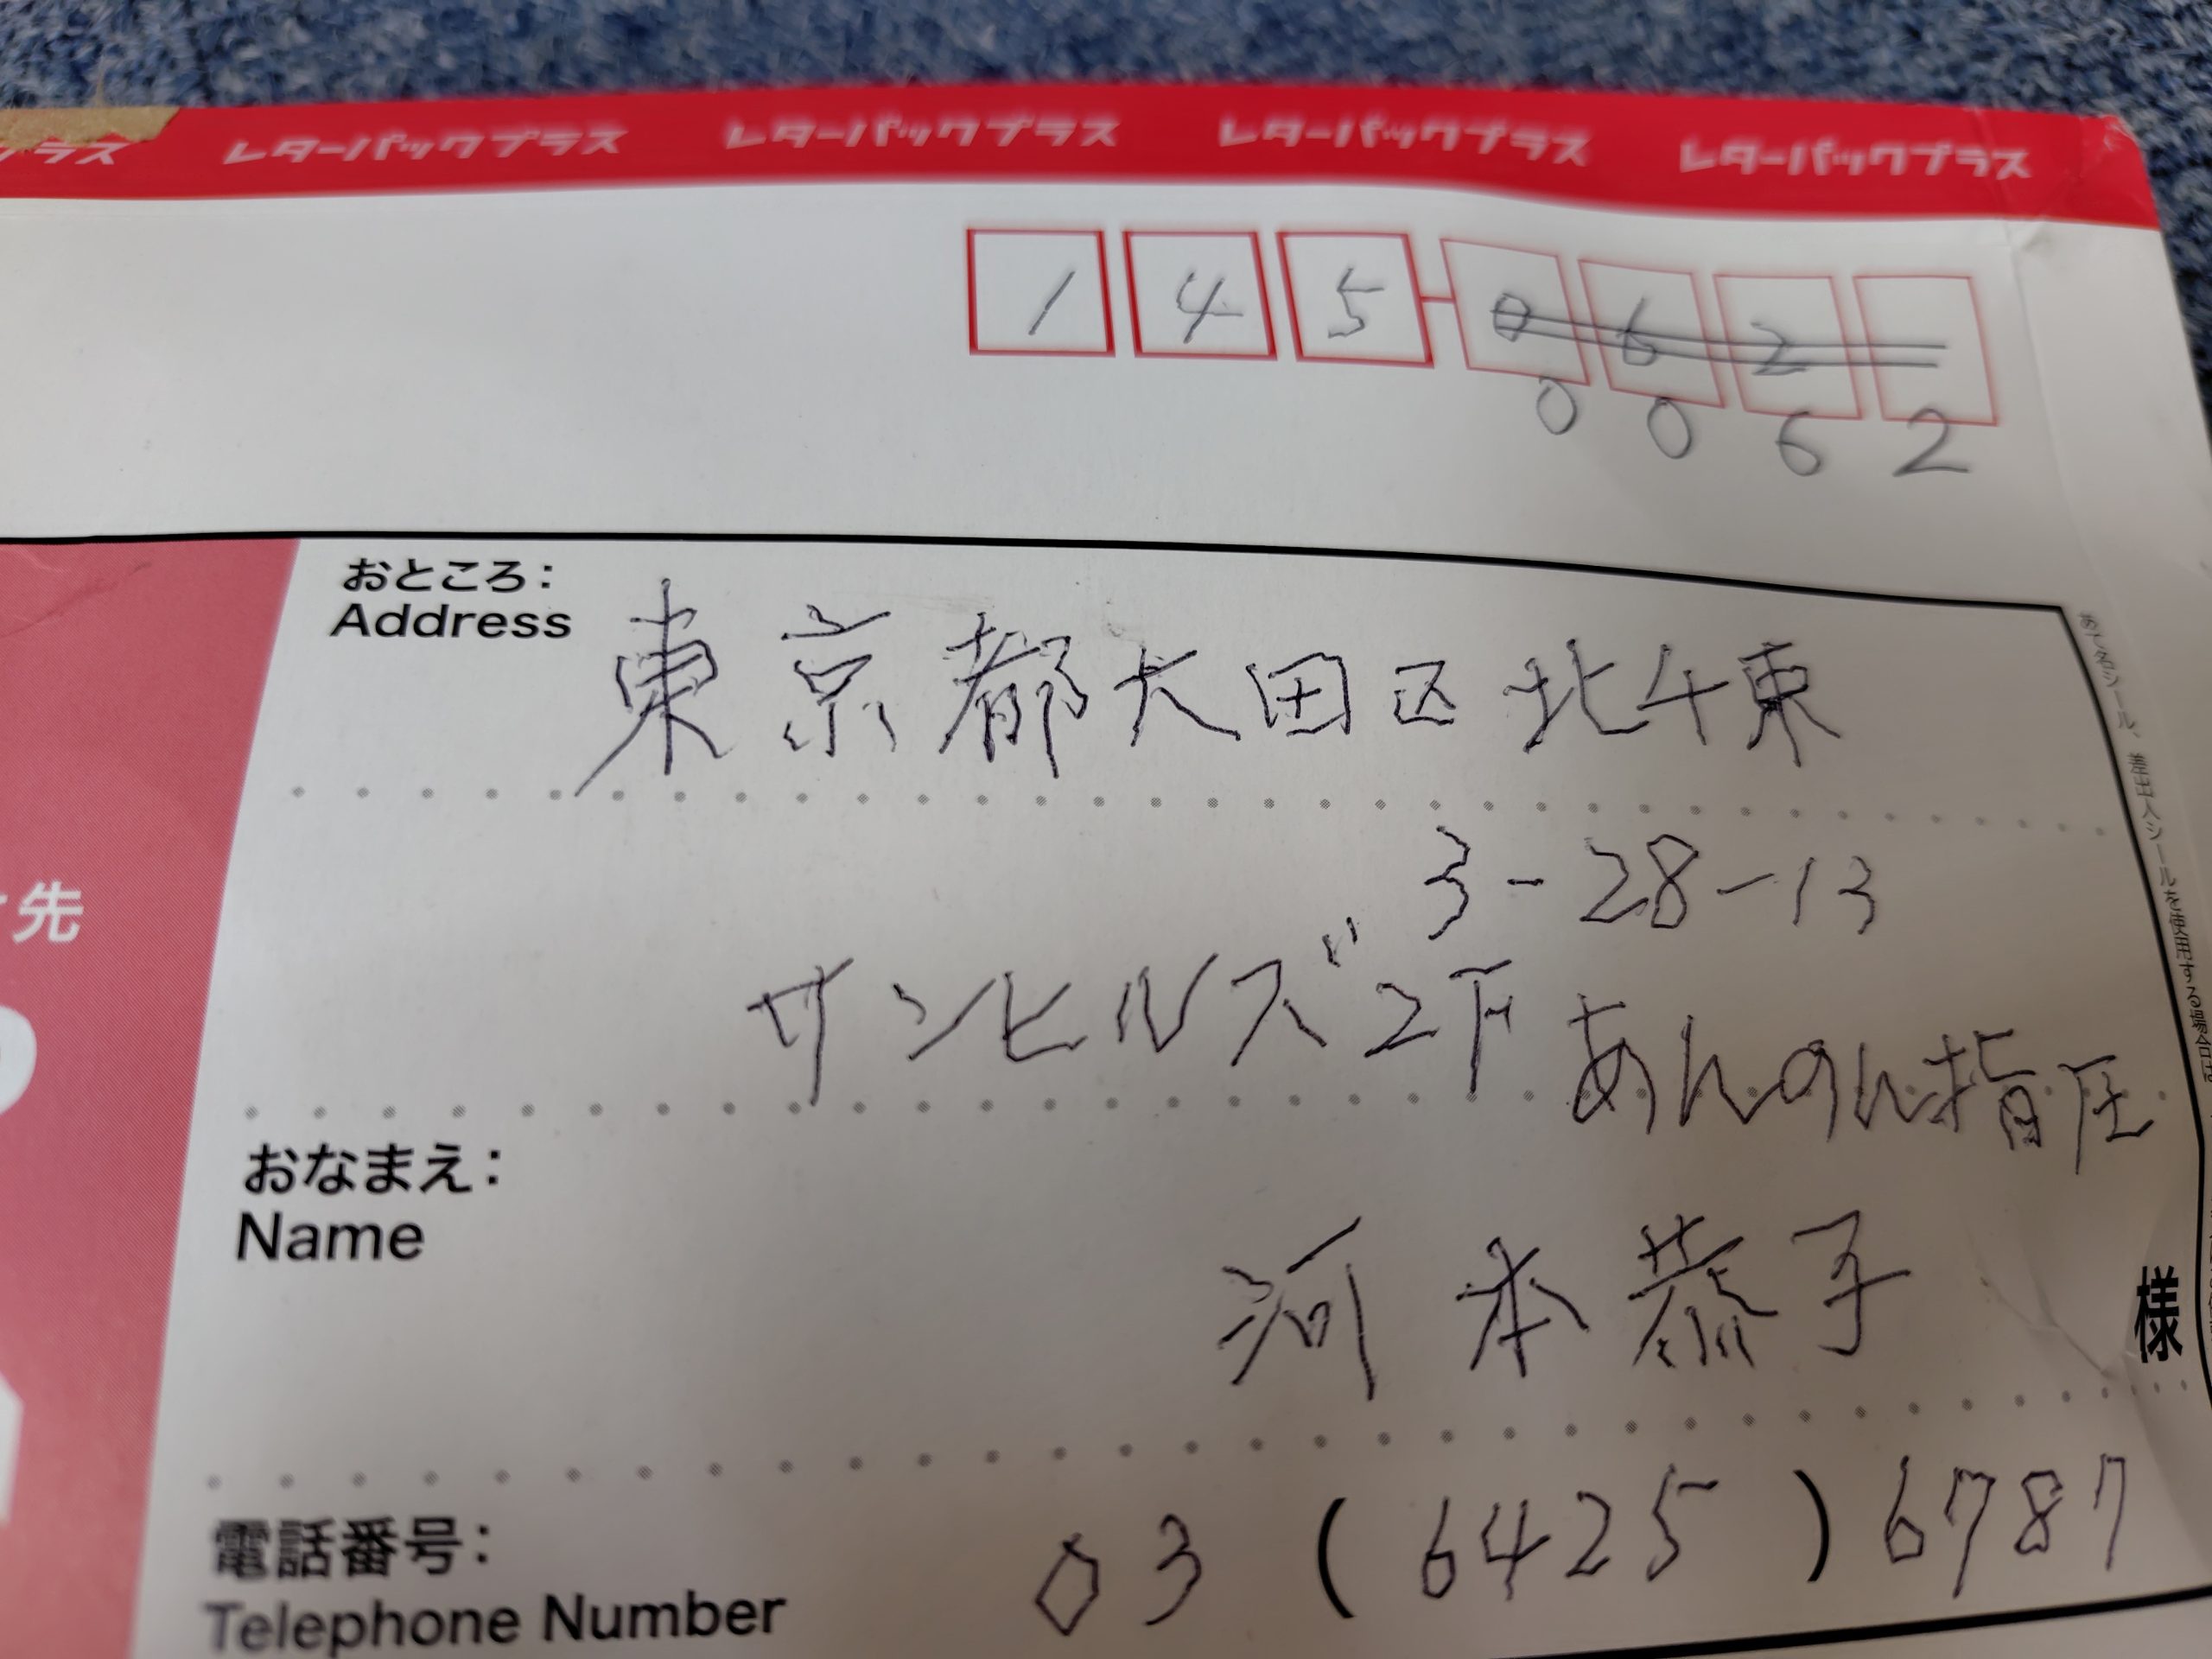 プラス レターパックプラス レターパックプラス レターパックプラス レターパックプラス
145-062
0062
おところ:
Address
東京都大田区北千束
3-28-13
サンヒルズ2F あんのん指圧
先
おなまえ:
Name
河本恭子
様
電話番号:
Telephone Number
03(6425)6787